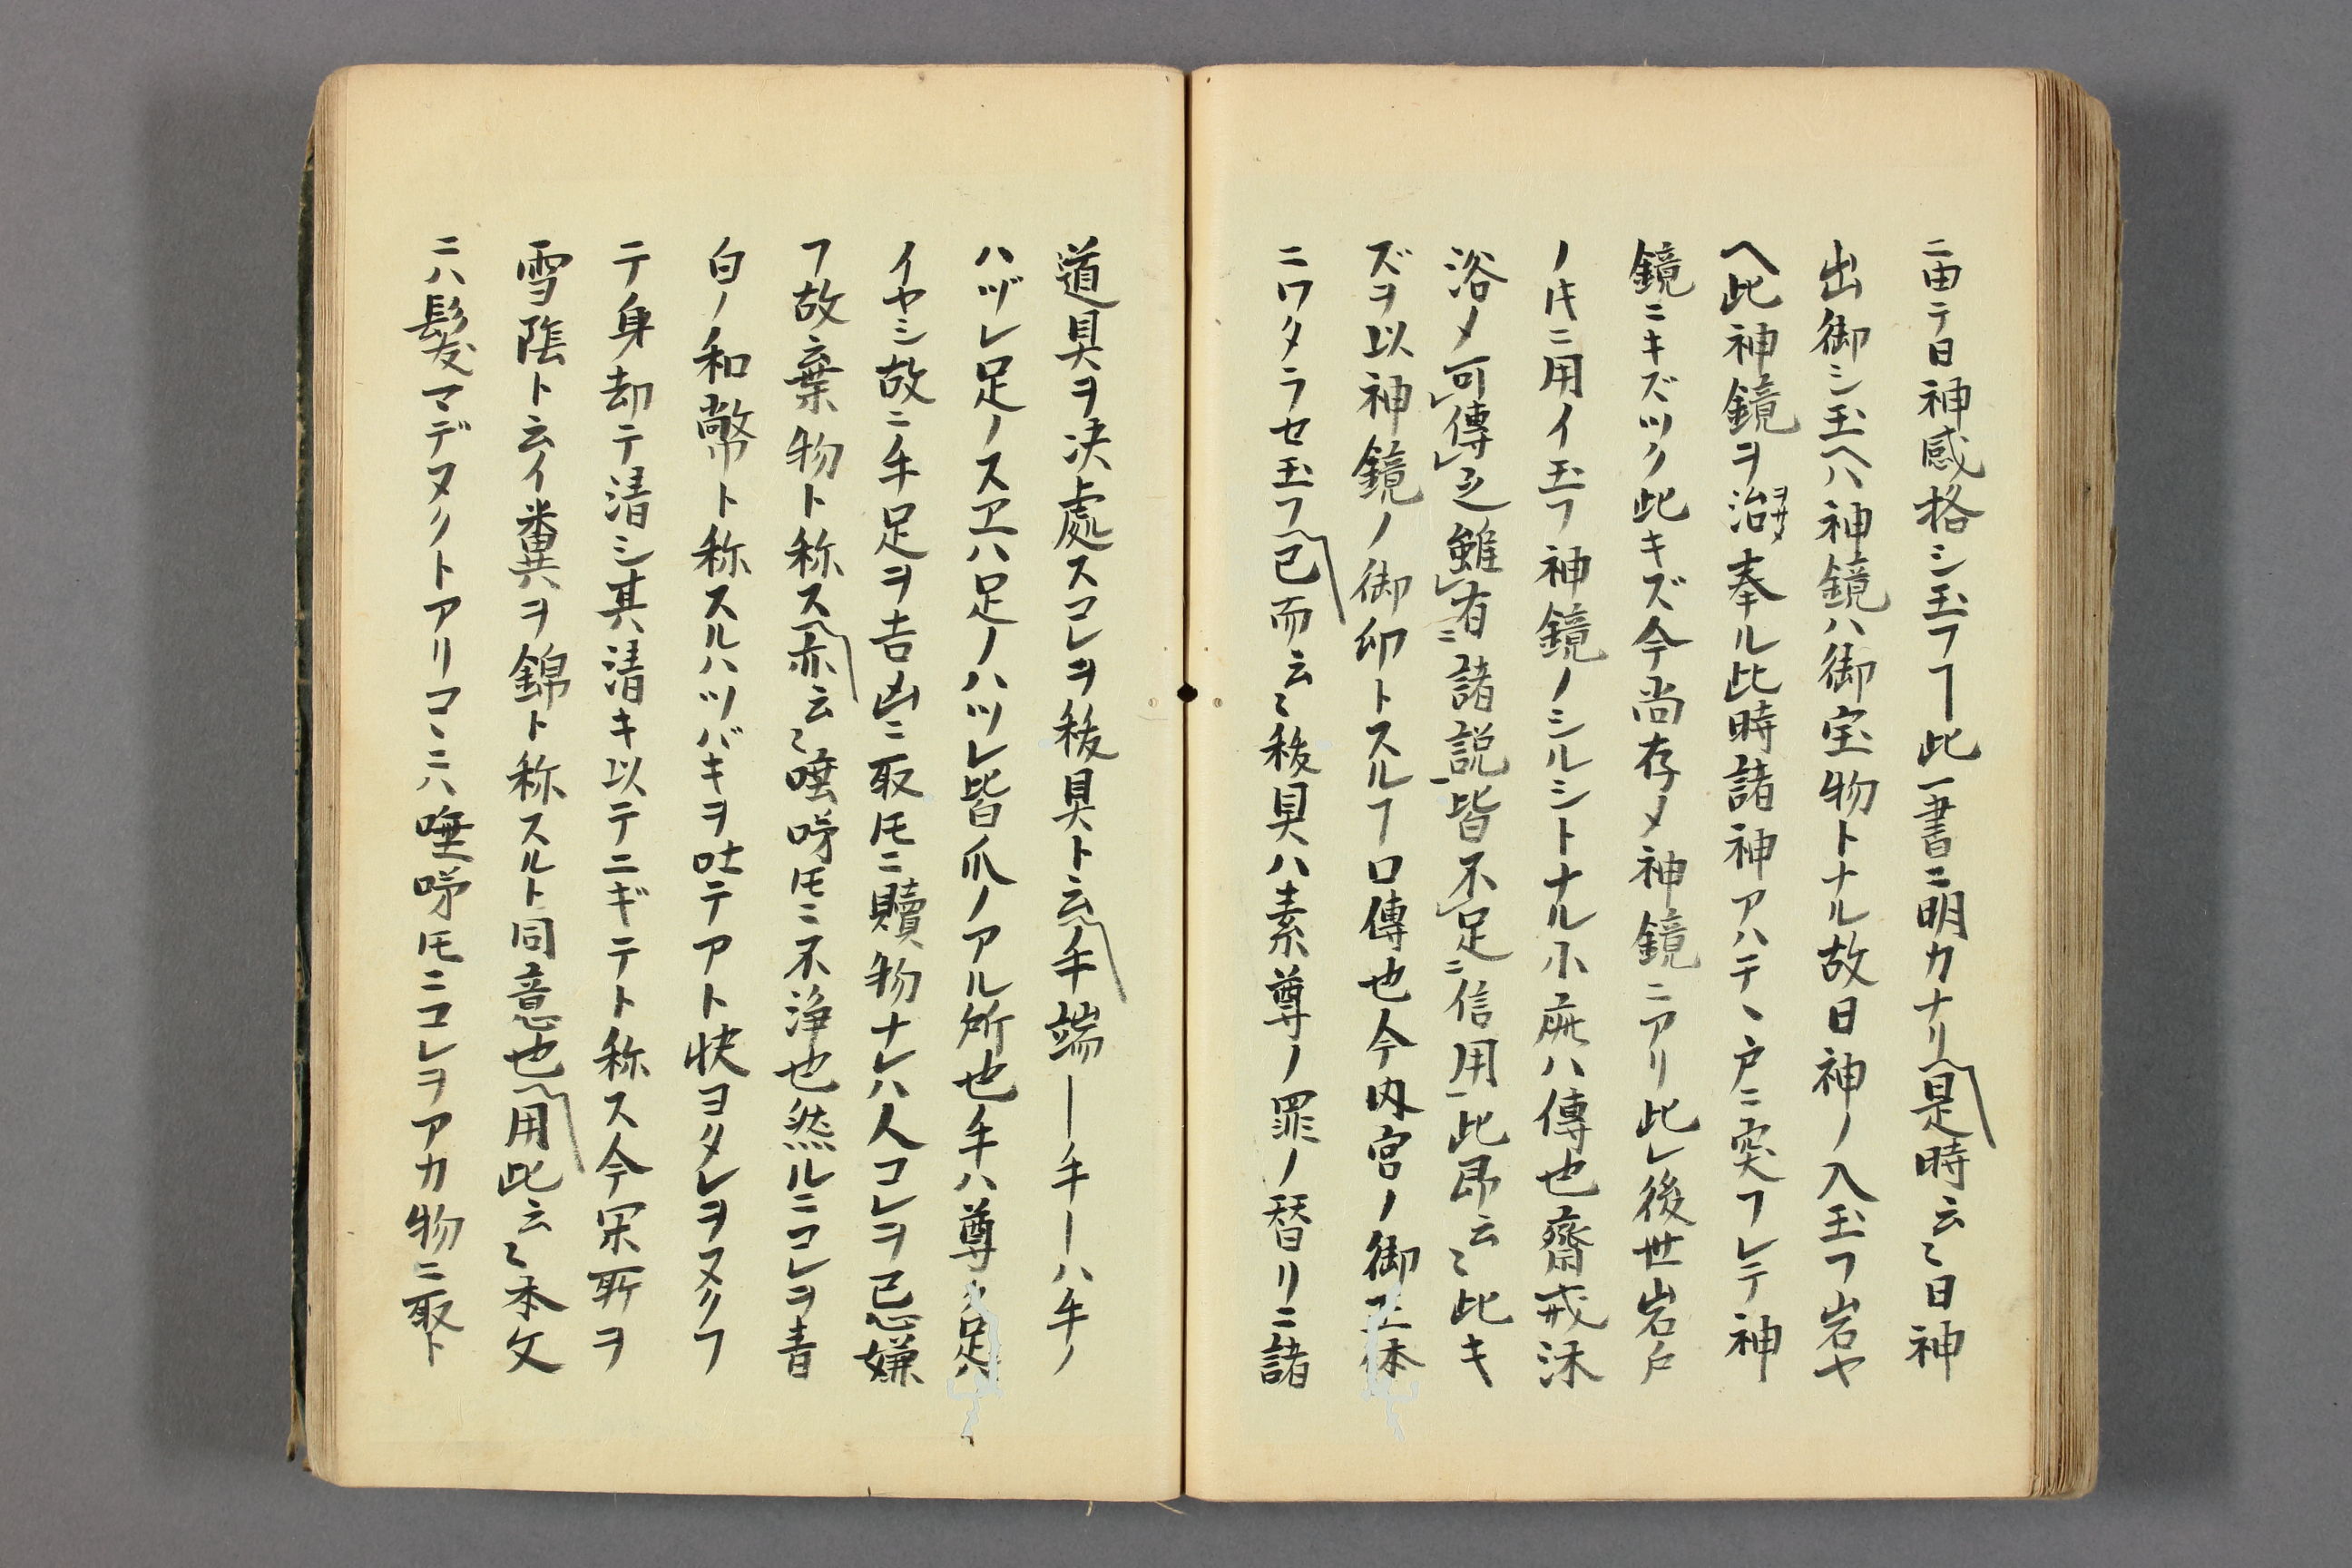 ニ由テ日神感格シ玉フヿ此一書ニ明カナリ是時云〻日神
出御シ玉ヘハ神鏡ハ御宝物トナル故日神ノ入玉フ岩ヤ
ヘ此神鏡ヲ治ヲサメ奉ル此時諸神アハテヽ戸ニ突フレテ神
鏡ニキズツク此キズ今尚存メ神鏡ニアリ此レ後世岩戸
ノ
ニ用イ玉フ神鏡ノシルシトナル小疵ハ傳也齋戒沐
浴メ可傳之雖有諸説皆不足信用此昂云〻此キ
ズヲ以神鏡ノ御印トスルヿ口傳也今内宮ノ御正体
ニワタラセ玉フ已而云〻秡具ハ素尊ノ罪ノ替リニ諸
道具ヲ決處スコレヲ秡具ト云手端ー手ーハ手ノ
ハヅレ足ノスヱハ足ノハツレ皆爪ノアル所也手ハ尊ク足ハ
イヤシ故ニ手足ヲ吉凶ニ取𪜈ニ贖物ナレハ人コレヲ忌嫌
フ故棄物ト称ス亦云〻唾㖒𪜈ニ不浄也然ルニコレヲ青
白ノ和幣ト称スルハツバキヲ吐テアト快ヨタレヲヌクフ
テ身却テ清シ其清キ以テニギテト称ス今
所ヲ
雪隂ト云イ糞ヲ錦ト称スルト同意也用此云〻本文
ニハ髪マデヌクトアリコヽニハ唾㖒𪜈ニコレヲアカ物ニ取ト